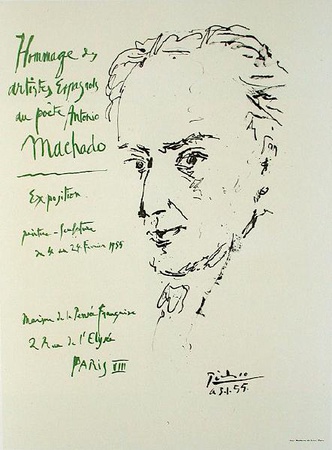 Hommage des
artistes Espagnols
au poète Antonio
Machado
Exposition
peinture - sculpture
du 4 au 25 Février 1955
Maison de la Pensée Française
2 Rue de l'Elysée
PARIS VIII
Picasso
5.1.55.